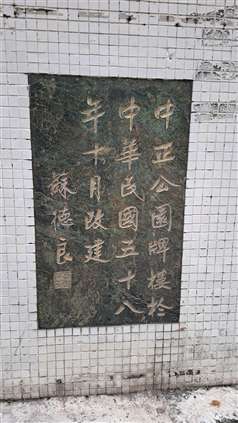 中正公園牌樓於
中華民國五十八
年十月改建
蘇德良